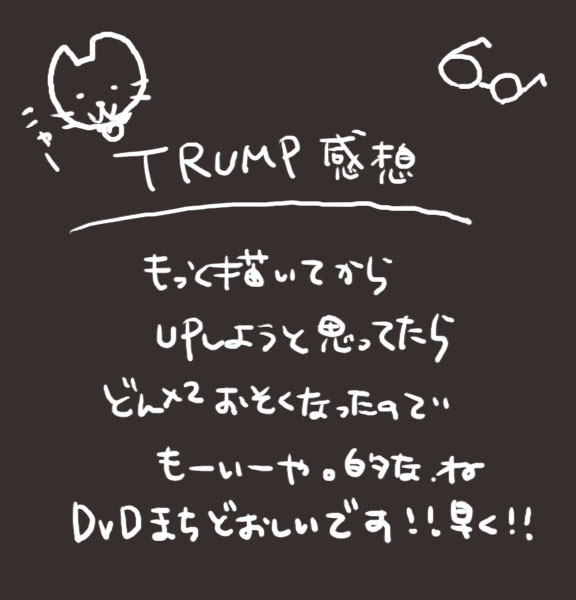 ニャー
TRUMP 感想
もっと描いてから
UPしようと思ってたら
どんどんおそくなったので
もーいーや。的な.ね
DVDまちどおしいです!!早く!!